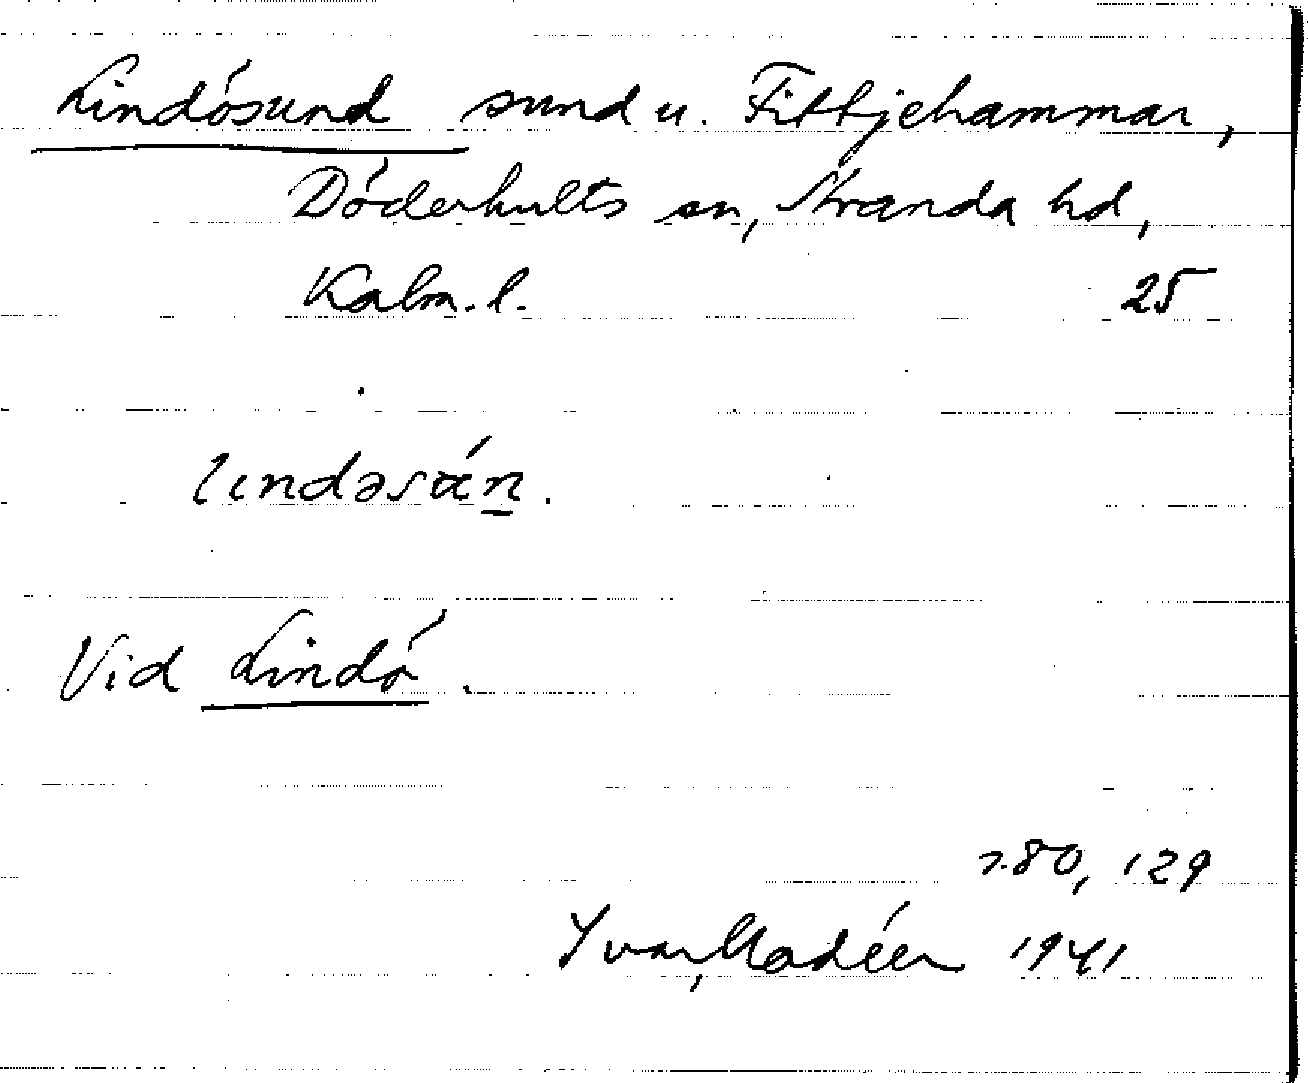 Lindösund sund u. Fittjehammar,
Döderhults sn, Stranda hd,
Kalm. l. 25
lındəsán.
Vid Lindö.
s. 80, 129
Yvar Modéer 1941